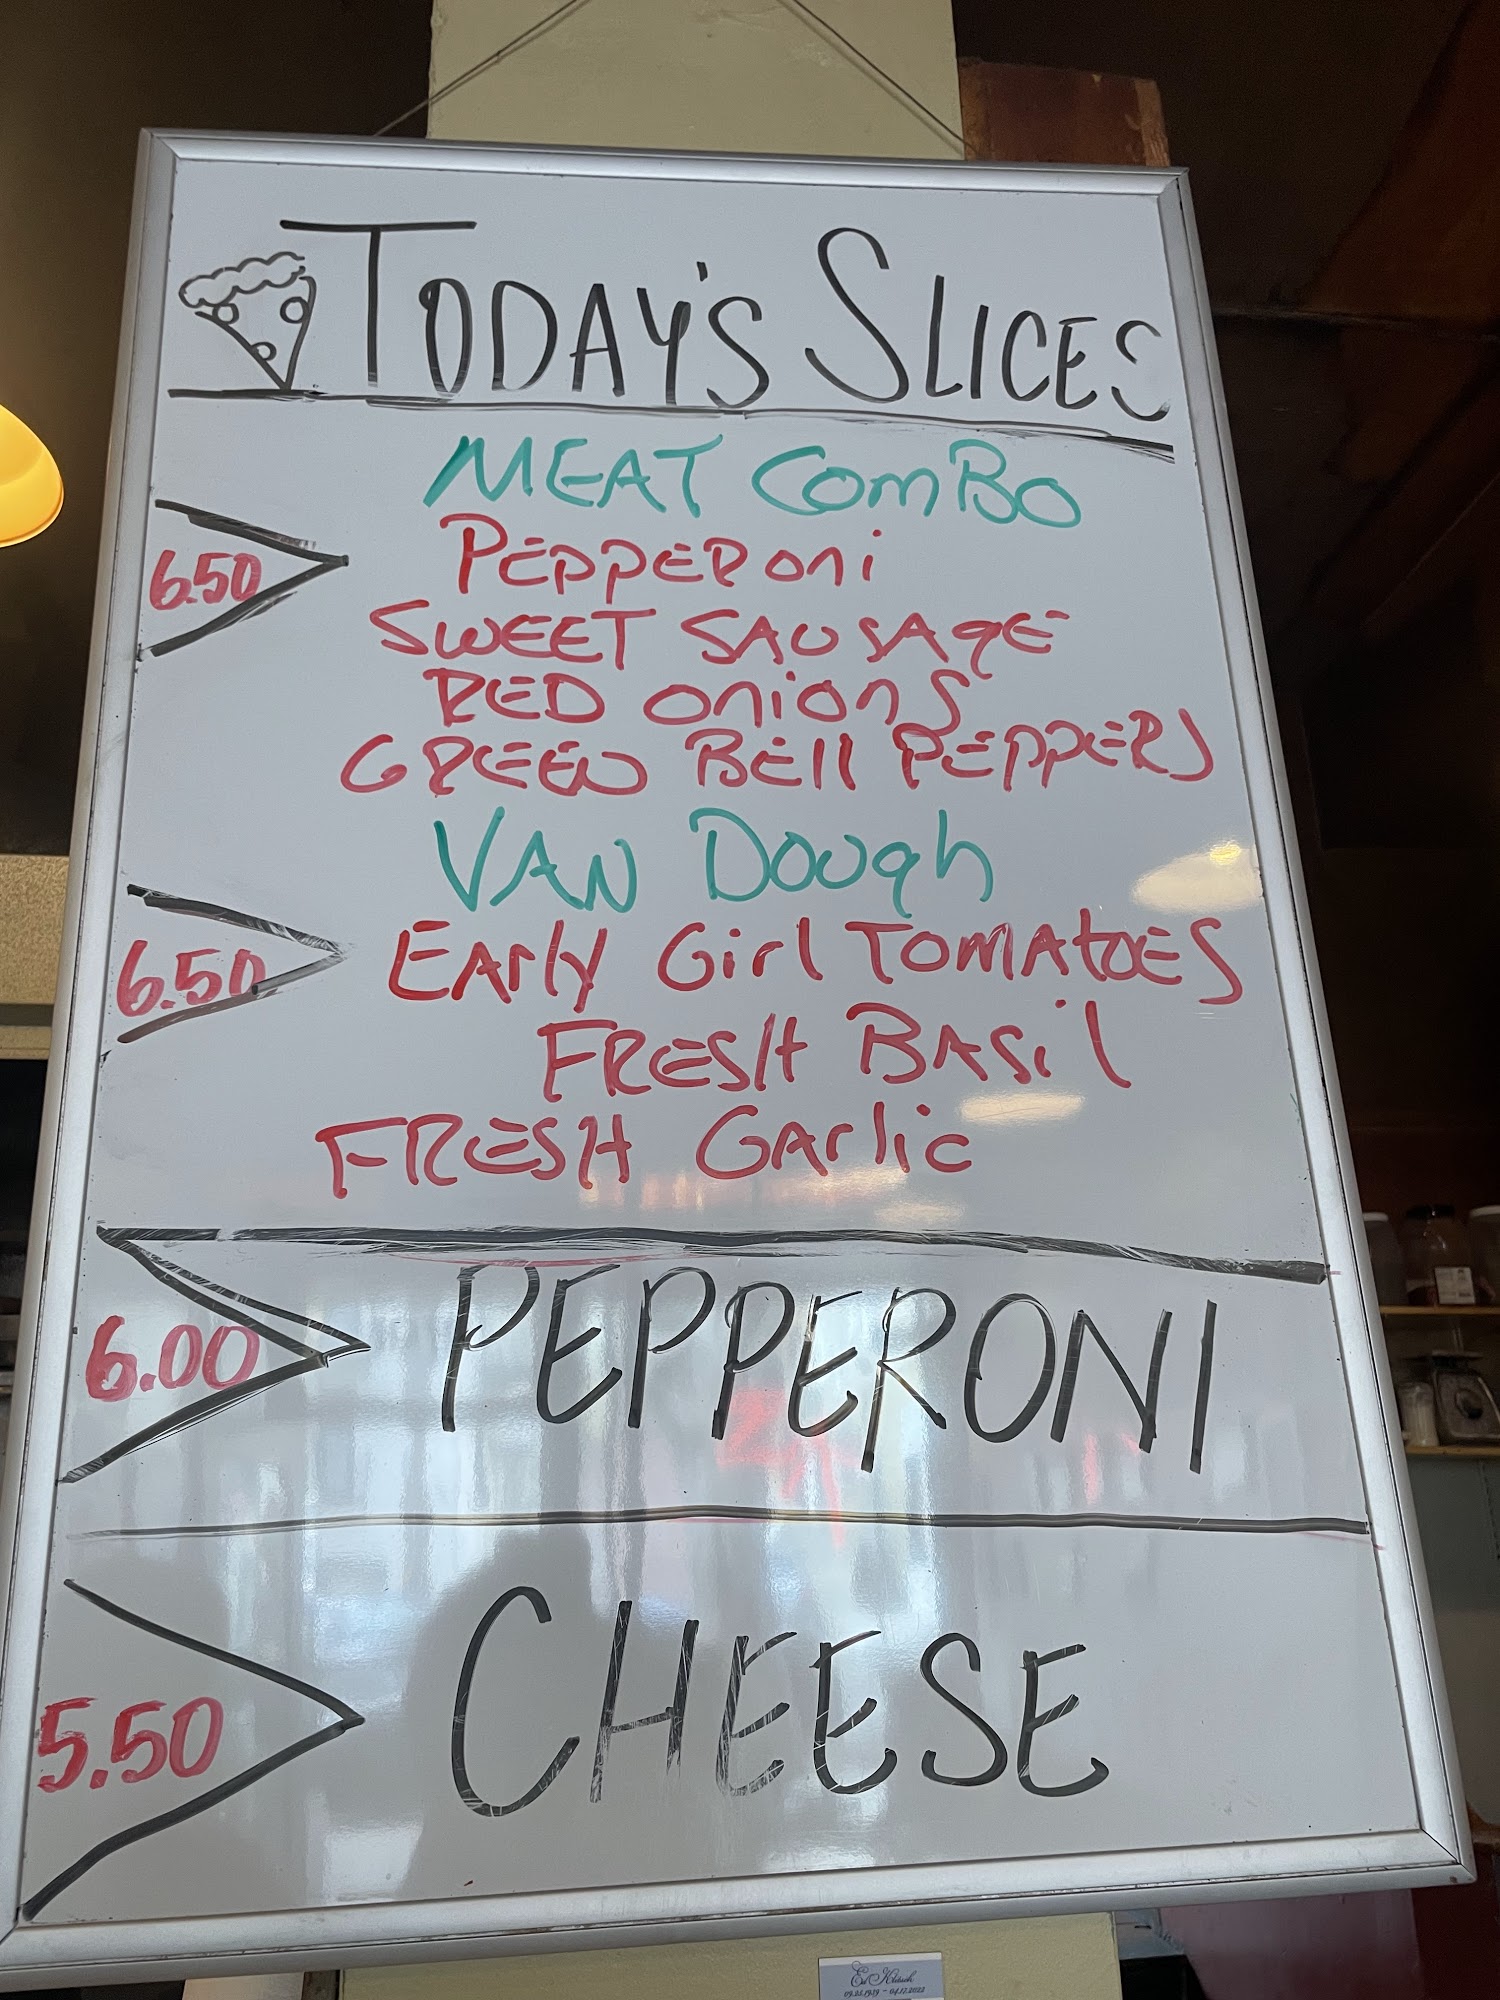 TODAY'S SLICES
MEAT COMBO
6.50
PEPPERONI
SWEET SAUSAGE
RED ONIONS
GREEN BELL PEPPERS
VAN DOUGH
6.50
EARLY GIRL TOMATOES
FRESH BASIL
FRESH GARLIC
6.00
PEPPERONI
5.50
CHEESE